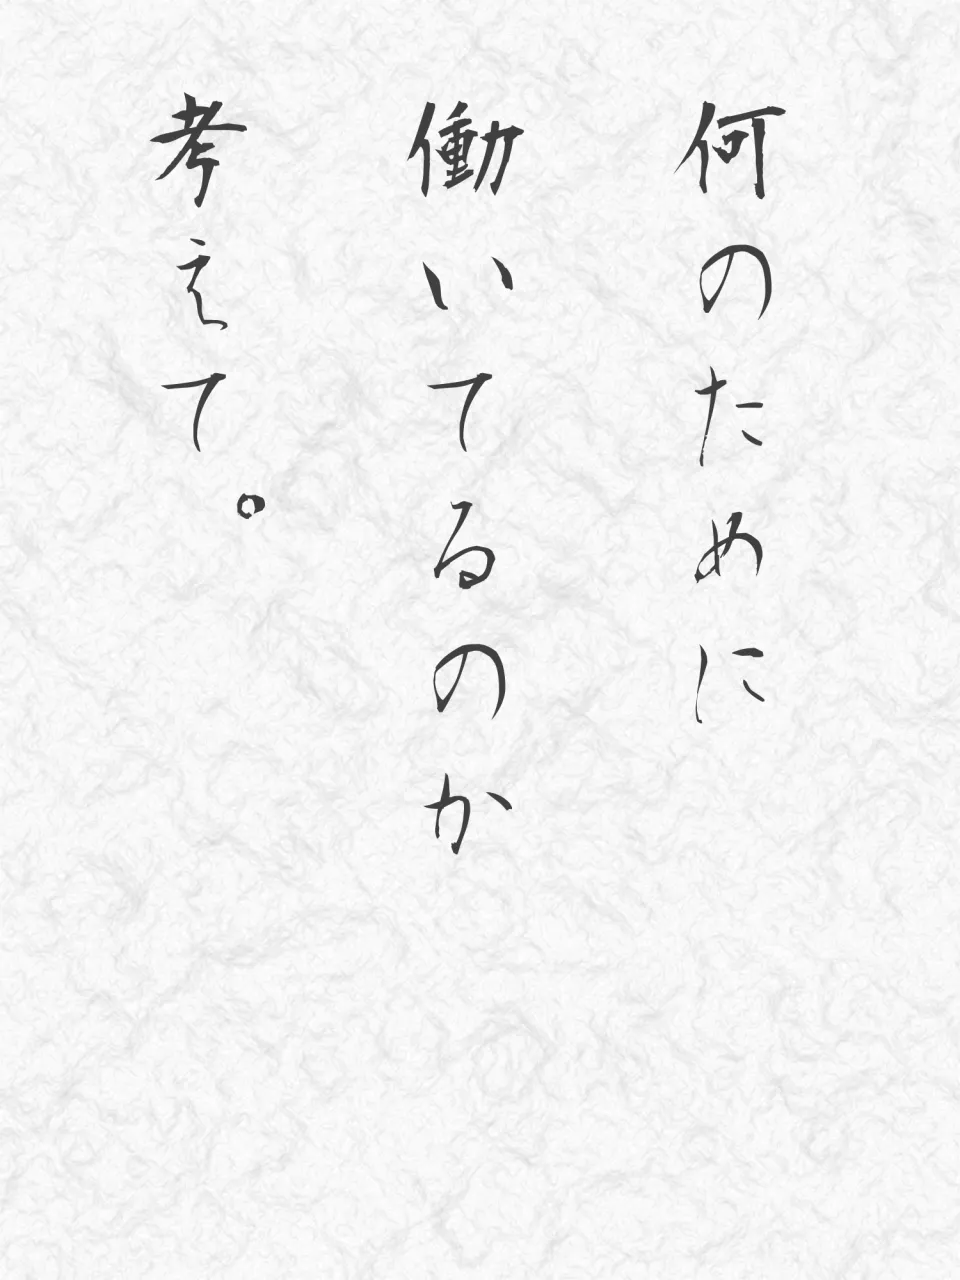 何のために
働いてるのか
考えて。